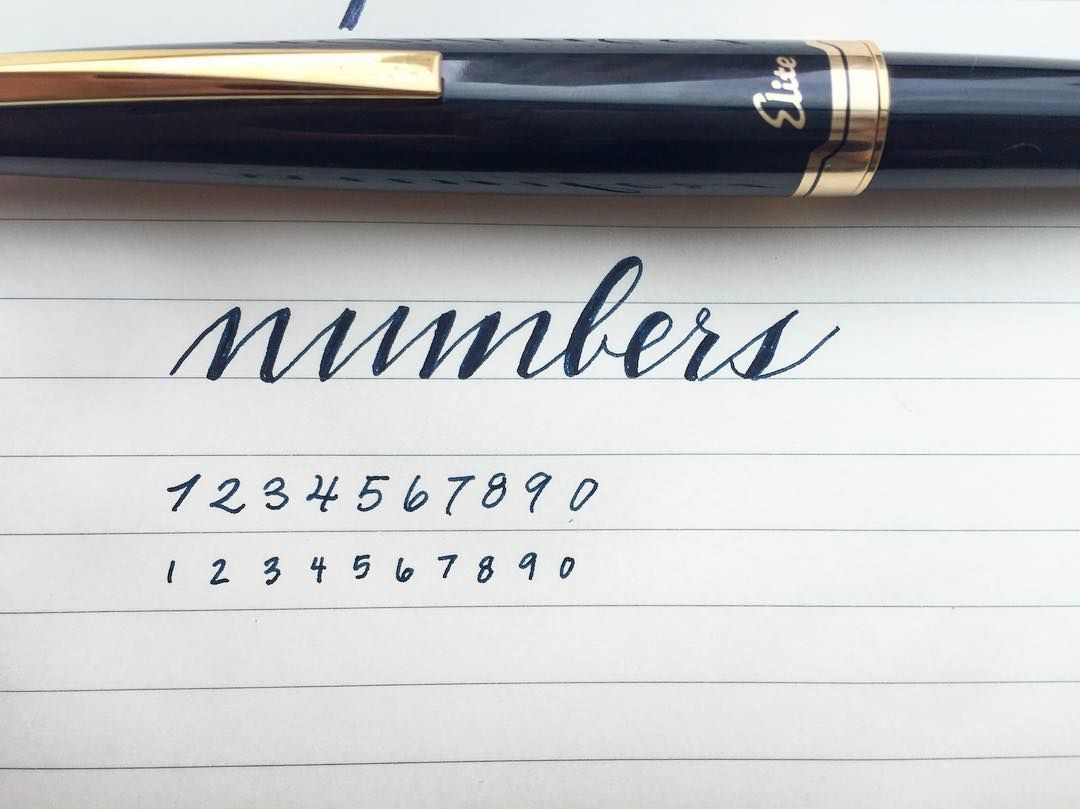 Elite
numbers
1 2 3 4 5 6 7 8 9 0
1 2 3 4 5 6 7 8 9 0